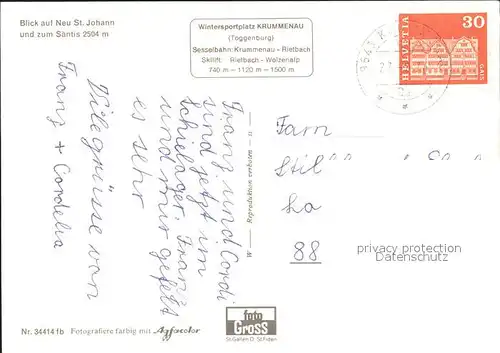 Blick auf Neu St. Johann
und zum Säntis 2504 m
Wintersportplatz KRUMMENAU
(Toggenburg)
Sesselbahn: Krummenau - Rietbach
Skilift: Rietbach - Wolzenalp
740 m — 1120 m — 1500 m
HELVETIA
30
GAIS
Franz und Cordi
sind jetzt im
Schielager. Franz
und mir gefelts
es sehr
Vilegrüsse von
Franz + Cordelia
Fam
Stil
La
88
privacy protection
Datenschutz
Reproduktion verboten
Nr. 34414 fb Fotografiere farbig mit Agfacolor
foto
Gross
St. Gallen O St. Fiden